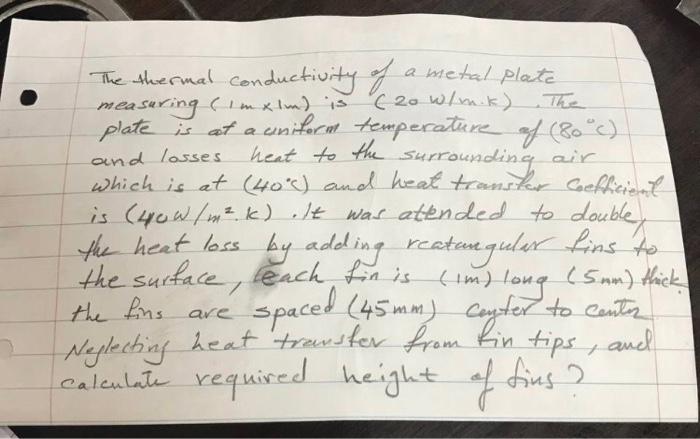 The thermal conductivity of a metal plate
measuring (1m x 1m) is (20 w/m.k). The
plate is at a uniform temperature of (80°c)
and losses heat to the surrounding air
which is at (40°c) and heat transfer Coefficient
is (40w/m².k). It was attended to double,
the heat loss by adding rcatungular fins to
the surface, each fin is (1m) long (5mm) thick
the fins are spaced (45mm) center to centr
Neglecting heat transfer from fin tips, and
calculate required height of fins?